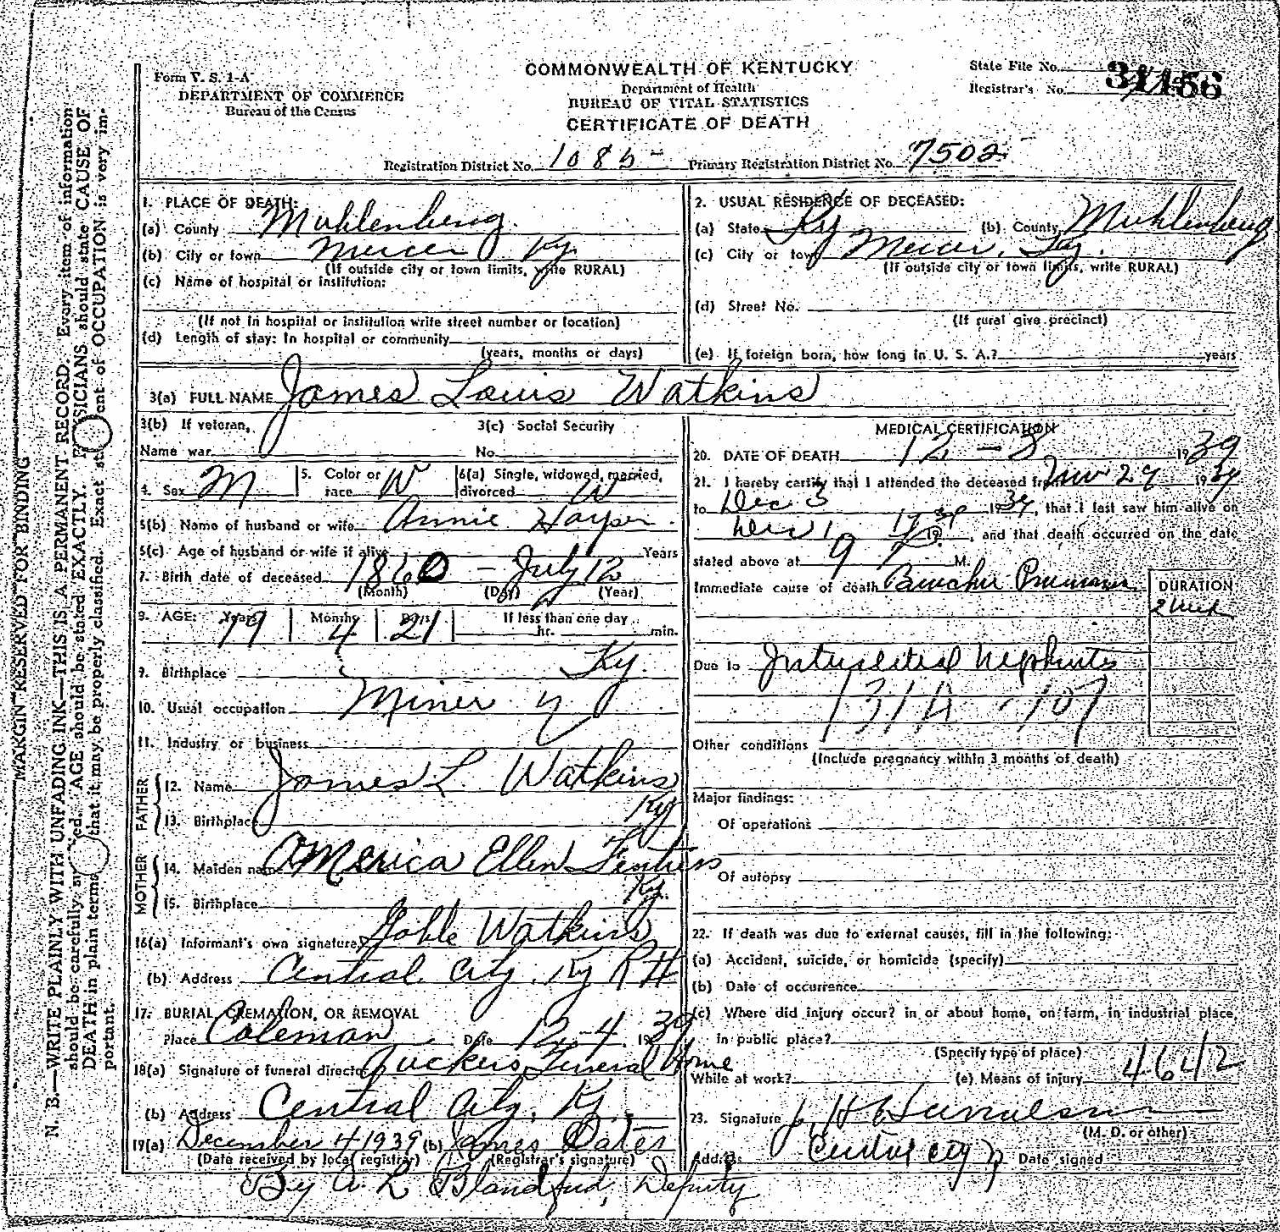 Form V. S. 1-A
DEPARTMENT OF COMMERCE
Bureau of the Census
COMMONWEALTH OF KENTUCKY
Department of Health
BUREAU OF VITAL STATISTICS
CERTIFICATE OF DEATH
State File No.
Registrar's No.
Registration District No. 1085 Primary Registration District No. 7502
1. PLACE OF DEATH:
(a) County Muhlenberg
(b) City or town Mercer Ky.
(If outside city or town limits, write RURAL)
(c) Name of hospital or institution:
(If not in hospital or institution write street number or location)
(d) Length of stay: In hospital or community
(years, months or days)
2. USUAL RESIDENCE OF DECEASED:
(a) State Ky (b) County Muhlenberg
(c) City or town Mercer, Ky.
(If outside city or town limits, write RURAL)
(d) Street No.
(If rural give precinct)
(e) If foreign born, how long in U. S. A.? years
3(a) FULL NAME James Louis Watkins
3(b) If veteran, 3(c) Social Security
Name war No.
4. Sex M 5. Color or race W 6(a) Single, widowed, married, divorced W
6(b) Name of husband or wife Annie Harper
6(c) Age of husband or wife if alive Years
7. Birth date of deceased 1860 - July 12
(Month) (Day) (Year)
8. AGE: Years 79 Months 4 Days 21 If less than one day
hr. min.
9. Birthplace Ky.
10. Usual occupation Miner
11. Industry or business
FATHER
12. Name James L. Watkins
13. Birthplace Ky
MOTHER
14. Maiden name America Ellen
15. Birthplace Ky.
16(a) Informant's own signature Goble Watkins
(b) Address Central City, Ky
17. BURIAL, CREMATION, OR REMOVAL
Place Coleman Date 12-4 1939
18(a) Signature of funeral director Tuckers Funeral Home
(b) Address Central City, Ky.
19(a) December 4 1939 (b) James Oates
(Date received by local registrar) (Registrar's signature)
By A L Blandford, Deputy
MEDICAL CERTIFICATION
20. DATE OF DEATH 12-3 1939
21. I hereby certify that I attended the deceased from Nov 29 1939
to Dec 3 1939, that I last saw him alive on
Dec 1 1939, and that death occurred on the date
stated above at 9 M.
Immediate cause of death Bronchu Pneumonia DURATION
2 week
Due to Interstitial Nephritis
131A - 107
Other conditions
(Include pregnancy within 3 months of death)
Major findings:
Of operations
Of autopsy
22. If death was due to external causes, fill in the following:
(a) Accident, suicide, or homicide (specify)
(b) Date of occurrence
(c) Where did injury occur? in or about home, on farm, in industrial place,
in public place?
(Specify type of place)
While at work? (e) Means of injury 4642
23. Signature
(M. D. or other)
Address Central City Date signed
MARGIN RESERVED FOR BINDING
N. B.—WRITE PLAINLY WITH UNFADING INK—THIS IS A PERMANENT RECORD. Every item of information
should be carefully AGE should be stated EXACTLY. PHYSICIANS should state CAUSE OF
DEATH in plain terms that it may be properly classified. Exact statement of OCCUPATION is very im-
portant.